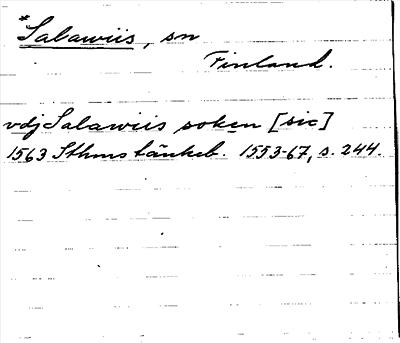 *Salawiis, sn
Finland.
vdj Salawiis soken [sic]
1563 Sthms tänkeb. 1553-67, s. 244.